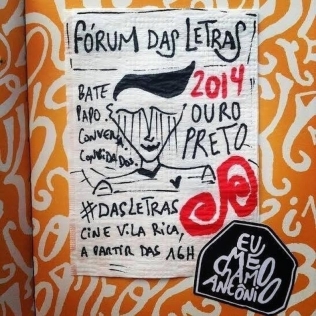 FÓRUM DAS LETRAS
2014
OURO
PRETO
BATE
PAPO &
CONVERSA.
CONVIDADOS.
#DASLETRAS
CINE VILA RICA,
A PARTIR DAS 16H
EU
ME
CHAMO
ANTÔNIO